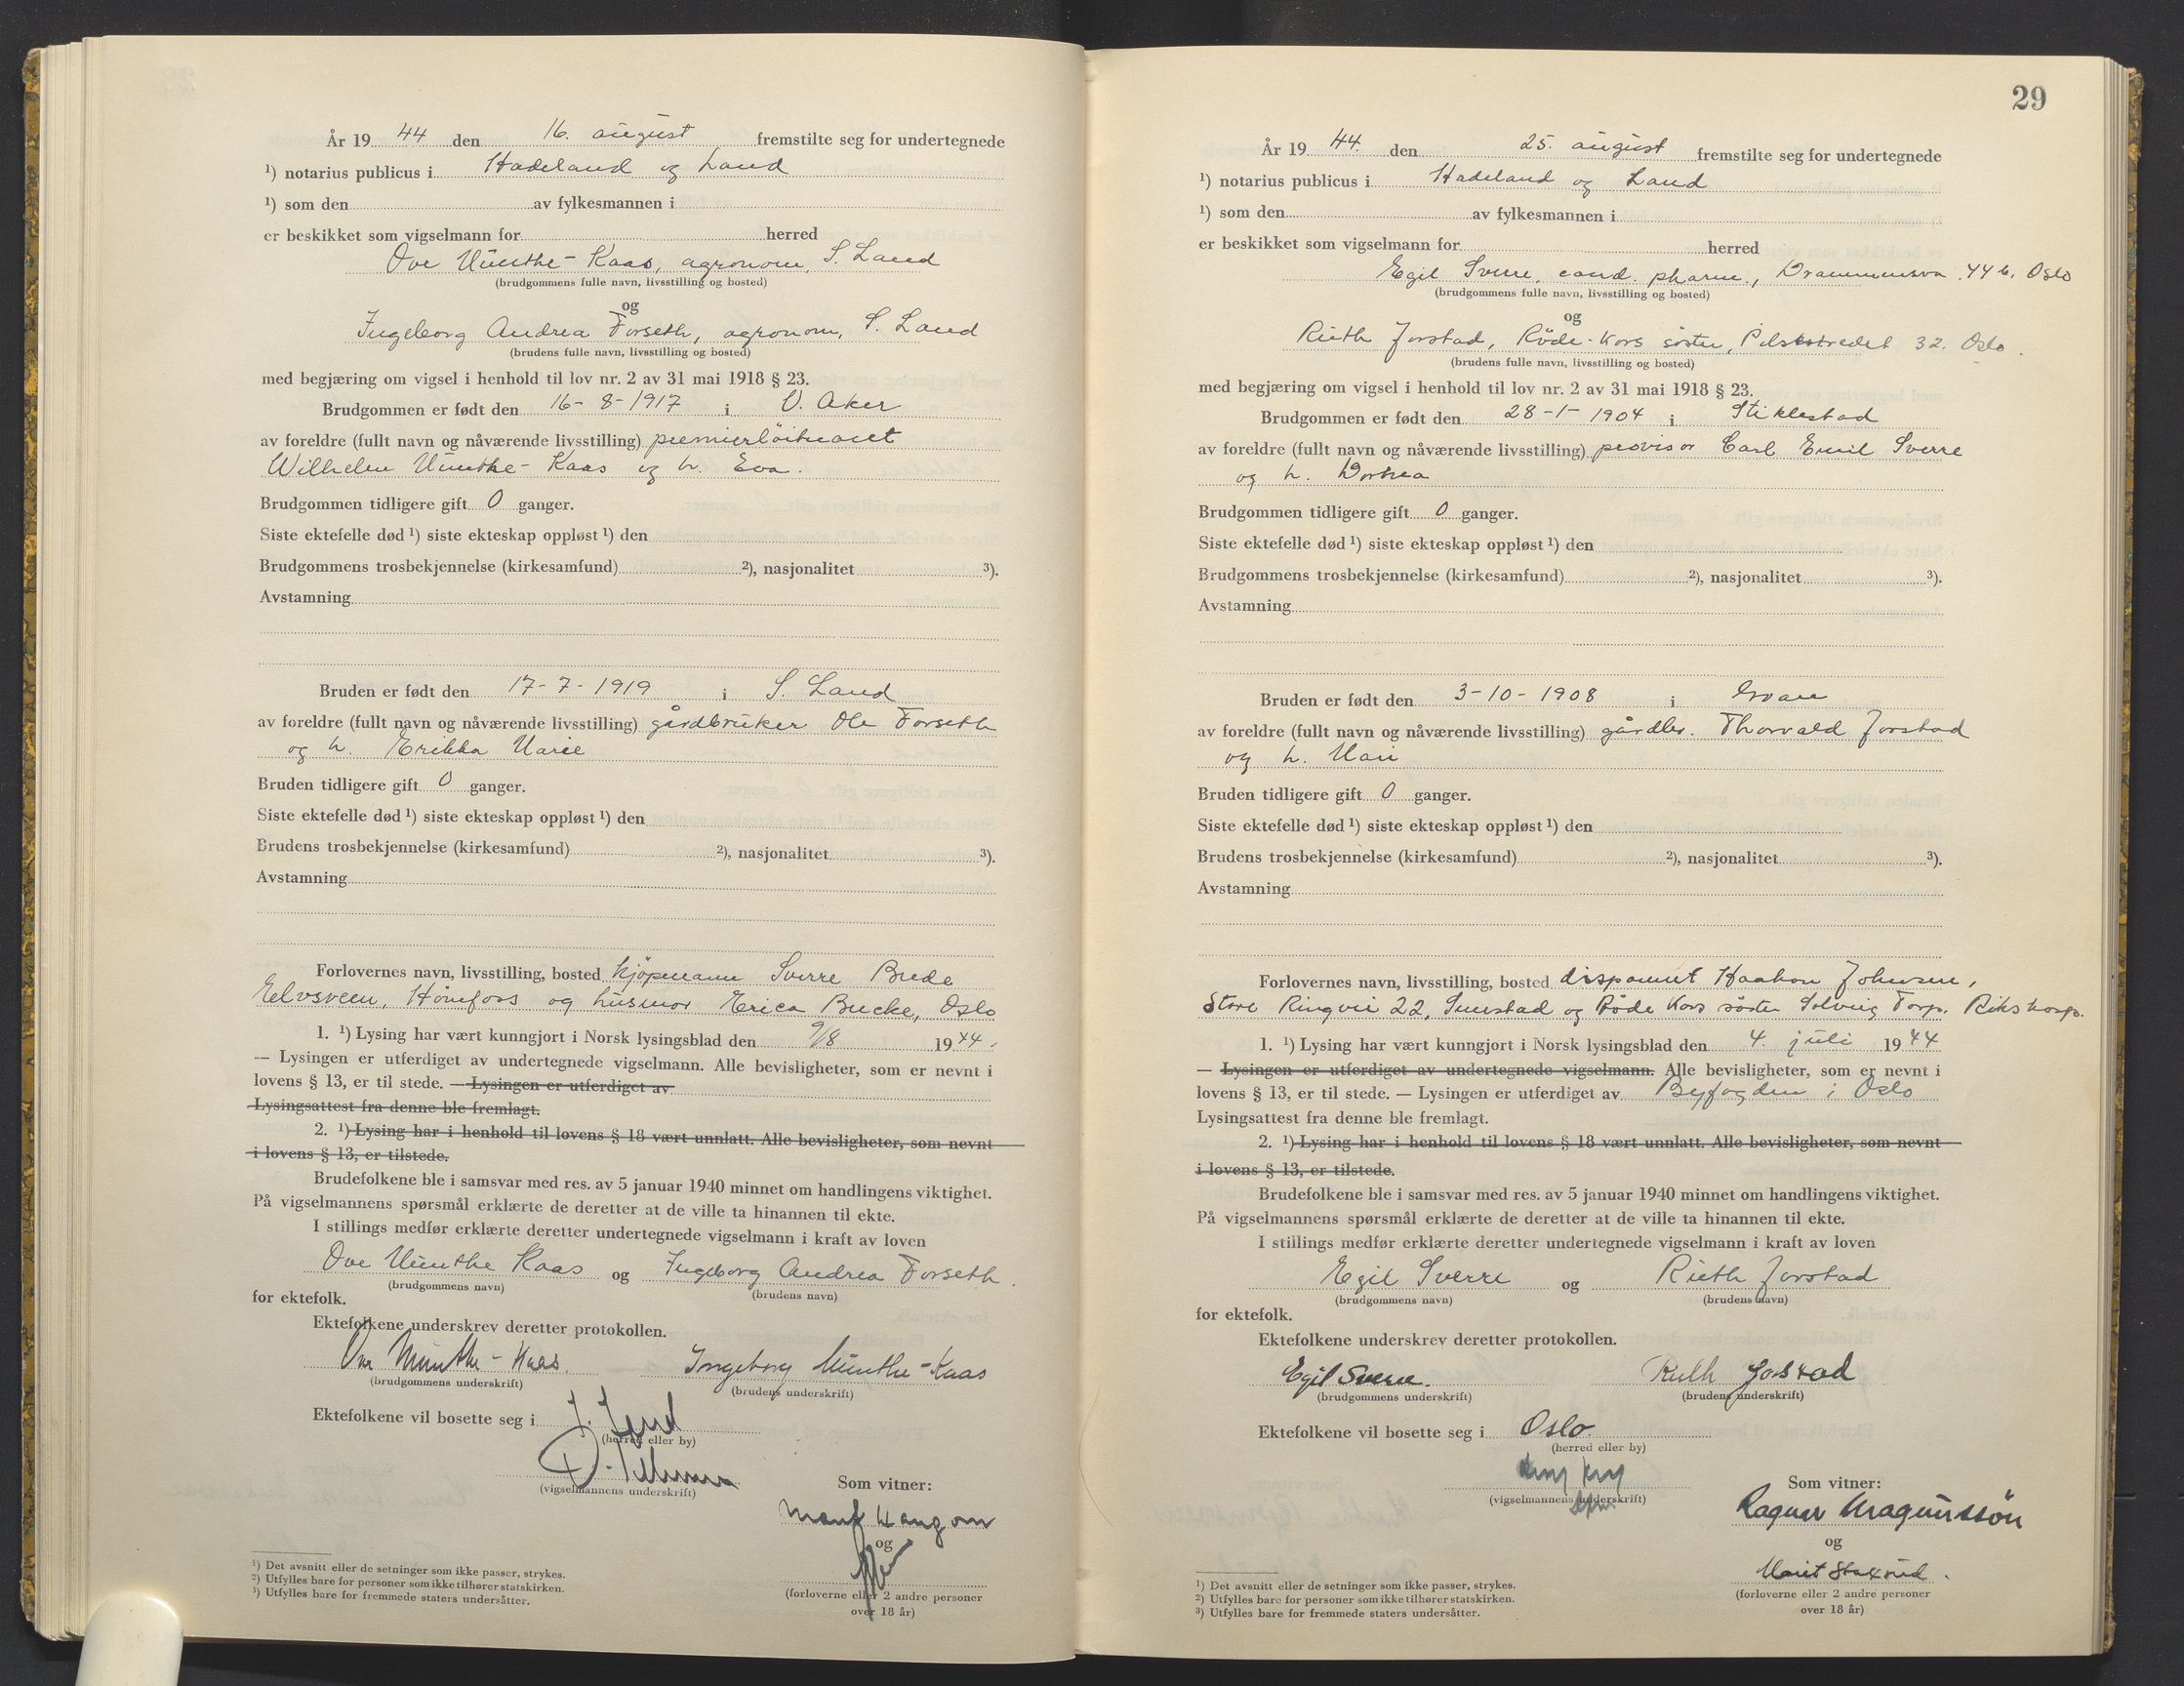 År 19 44 den 16. august fremstilte seg for undertegnede
¹) notarius publicus i Hadeland og Land
¹) som den av fylkesmannen i
er beskikket som vigselmann for herred
Ove Munthe-Kaas, agronom, S. Land
(brudgommens fulle navn, livsstilling og bosted)
og
Ingeborg Andrea Forseth, agronom, S. Land
(brudens fulle navn, livsstilling og bosted)
med begjæring om vigsel i henhold til lov nr. 2 av 31 mai 1918 § 23.
Brudgommen er født den 16-8-1917 i V. Aker
av foreldre (fullt navn og nåværende livsstilling) premierløitnant
Wilhelm Munthe-Kaas og h. Eva.
Brudgommen tidligere gift 0 ganger.
Siste ektefelle død ¹) siste ekteskap oppløst ¹) den
Brudgommens trosbekjennelse (kirkesamfund) ²), nasjonalitet ³).
Avstamning
Bruden er født den 17-7-1919 i S. Land
av foreldre (fullt navn og nåværende livsstilling) gårdbruker Ole Forseth
og h. Erikka Marie
Bruden tidligere gift 0 ganger.
Siste ektefelle død ¹) siste ekteskap oppløst ¹) den
Brudens trosbekjennelse (kirkesamfund) ²), nasjonalitet ³).
Avstamning
Forlovernes navn, livsstilling, bosted kjöpmann Sverre Brede
Elvsveen, Hönefoss og husmor Erica Bucke, Oslo
1. ¹) Lysing har vært kunngjort i Norsk lysingsblad den 9/8 19 44.
— Lysingen er utferdiget av undertegnede vigselmann. Alle bevisligheter, som er nevnt i
lovens § 13, er til stede. — Lysingen er utferdiget av
Lysingsattest fra denne ble fremlagt.
2. ¹) Lysing har i henhold til lovens § 18 vært unnlatt. Alle bevisligheter, som nevnt
i lovens § 13, er tilstede.
Brudefolkene ble i samsvar med res. av 5 januar 1940 minnet om handlingens viktighet.
På vigselmannens spørsmål erklærte de deretter at de ville ta hinannen til ekte.
I stillings medfør erklærte deretter undertegnede vigselmann i kraft av loven
Ove Munthe Kaas og Ingeborg Andrea Forseth.
(brudgommens navn) (brudens navn)
for ektefolk.
Ektefolkene underskrev deretter protokollen.
Ove Munthe-Kaas. Ingeborg Munthe-Kaas
(brudgommens underskrift) (brudens underskrift)
Ektefolkene vil bosette seg i S. Land
(herred eller by)
(vigselmannens underskrift)
Som vitner:
og
(forloverne eller 2 andre personer
over 18 år)
¹) Det avsnitt eller de setninger som ikke passer, strykes.
²) Utfylles bare for personer som ikke tilhører statskirken.
³) Utfylles bare for fremmede staters undersåtter.
29
År 19 44. den 25. august fremstilte seg for undertegnede
¹) notarius publicus i Hadeland og Land
¹) som den av fylkesmannen i
er beskikket som vigselmann for herred
Egil Sverre, cand. pharm., Drammensvn. 44 b. Oslo
(brudgommens fulle navn, livsstilling og bosted)
og
Ruth Jorstad, Röde-Kors söster, Pilestredet 32. Oslo.
(brudens fulle navn, livsstilling og bosted)
med begjæring om vigsel i henhold til lov nr. 2 av 31 mai 1918 § 23.
Brudgommen er født den 28-1-1904 i Stiklestad
av foreldre (fullt navn og nåværende livsstilling) provisor Carl Emil Sverre
og h. Dorthea
Brudgommen tidligere gift 0 ganger.
Siste ektefelle død ¹) siste ekteskap oppløst ¹) den
Brudgommens trosbekjennelse (kirkesamfund) ²), nasjonalitet ³).
Avstamning
Bruden er født den 3-10-1908 i Gran
av foreldre (fullt navn og nåværende livsstilling) gårdbr. Thorvald Jorstad
og h. Mari
Bruden tidligere gift 0 ganger.
Siste ektefelle død ¹) siste ekteskap oppløst ¹) den
Brudens trosbekjennelse (kirkesamfund) ²), nasjonalitet ³).
Avstamning
Forlovernes navn, livsstilling, bosted disponent Haakon Johnsen,
Store Ringvei 22, Smestad og Röde Kors söster Solveig Torp. Rikshosp.
1. ¹) Lysing har vært kunngjort i Norsk lysingsblad den 4. juli 19 44
— Lysingen er utferdiget av undertegnede vigselmann. Alle bevisligheter, som er nevnt i
lovens § 13, er til stede. — Lysingen er utferdiget av Byfogden i Oslo
Lysingsattest fra denne ble fremlagt.
2. ¹) Lysing har i henhold til lovens § 18 vært unnlatt. Alle bevisligheter, som nevnt
i lovens § 13, er tilstede.
Brudefolkene ble i samsvar med res. av 5 januar 1940 minnet om handlingens viktighet.
På vigselmannens spørsmål erklærte de deretter at de ville ta hinannen til ekte.
I stillings medfør erklærte deretter undertegnede vigselmann i kraft av loven
Egil Sverre og Ruth Jorstad
(brudgommens navn) (brudens navn)
for ektefolk.
Ektefolkene underskrev deretter protokollen.
Egil Sverre. Ruth Jorstad
(brudgommens underskrift) (brudens underskrift)
Ektefolkene vil bosette seg i Oslo
(herred eller by)
(vigselmannens underskrift)
Som vitner:
Ragnar
og
Marit Staxrud.
(forloverne eller 2 andre personer
over 18 år)
¹) Det avsnitt eller de setninger som ikke passer, strykes.
²) Utfylles bare for personer som ikke tilhører statskirken.
³) Utfylles bare for fremmede staters undersåtter.